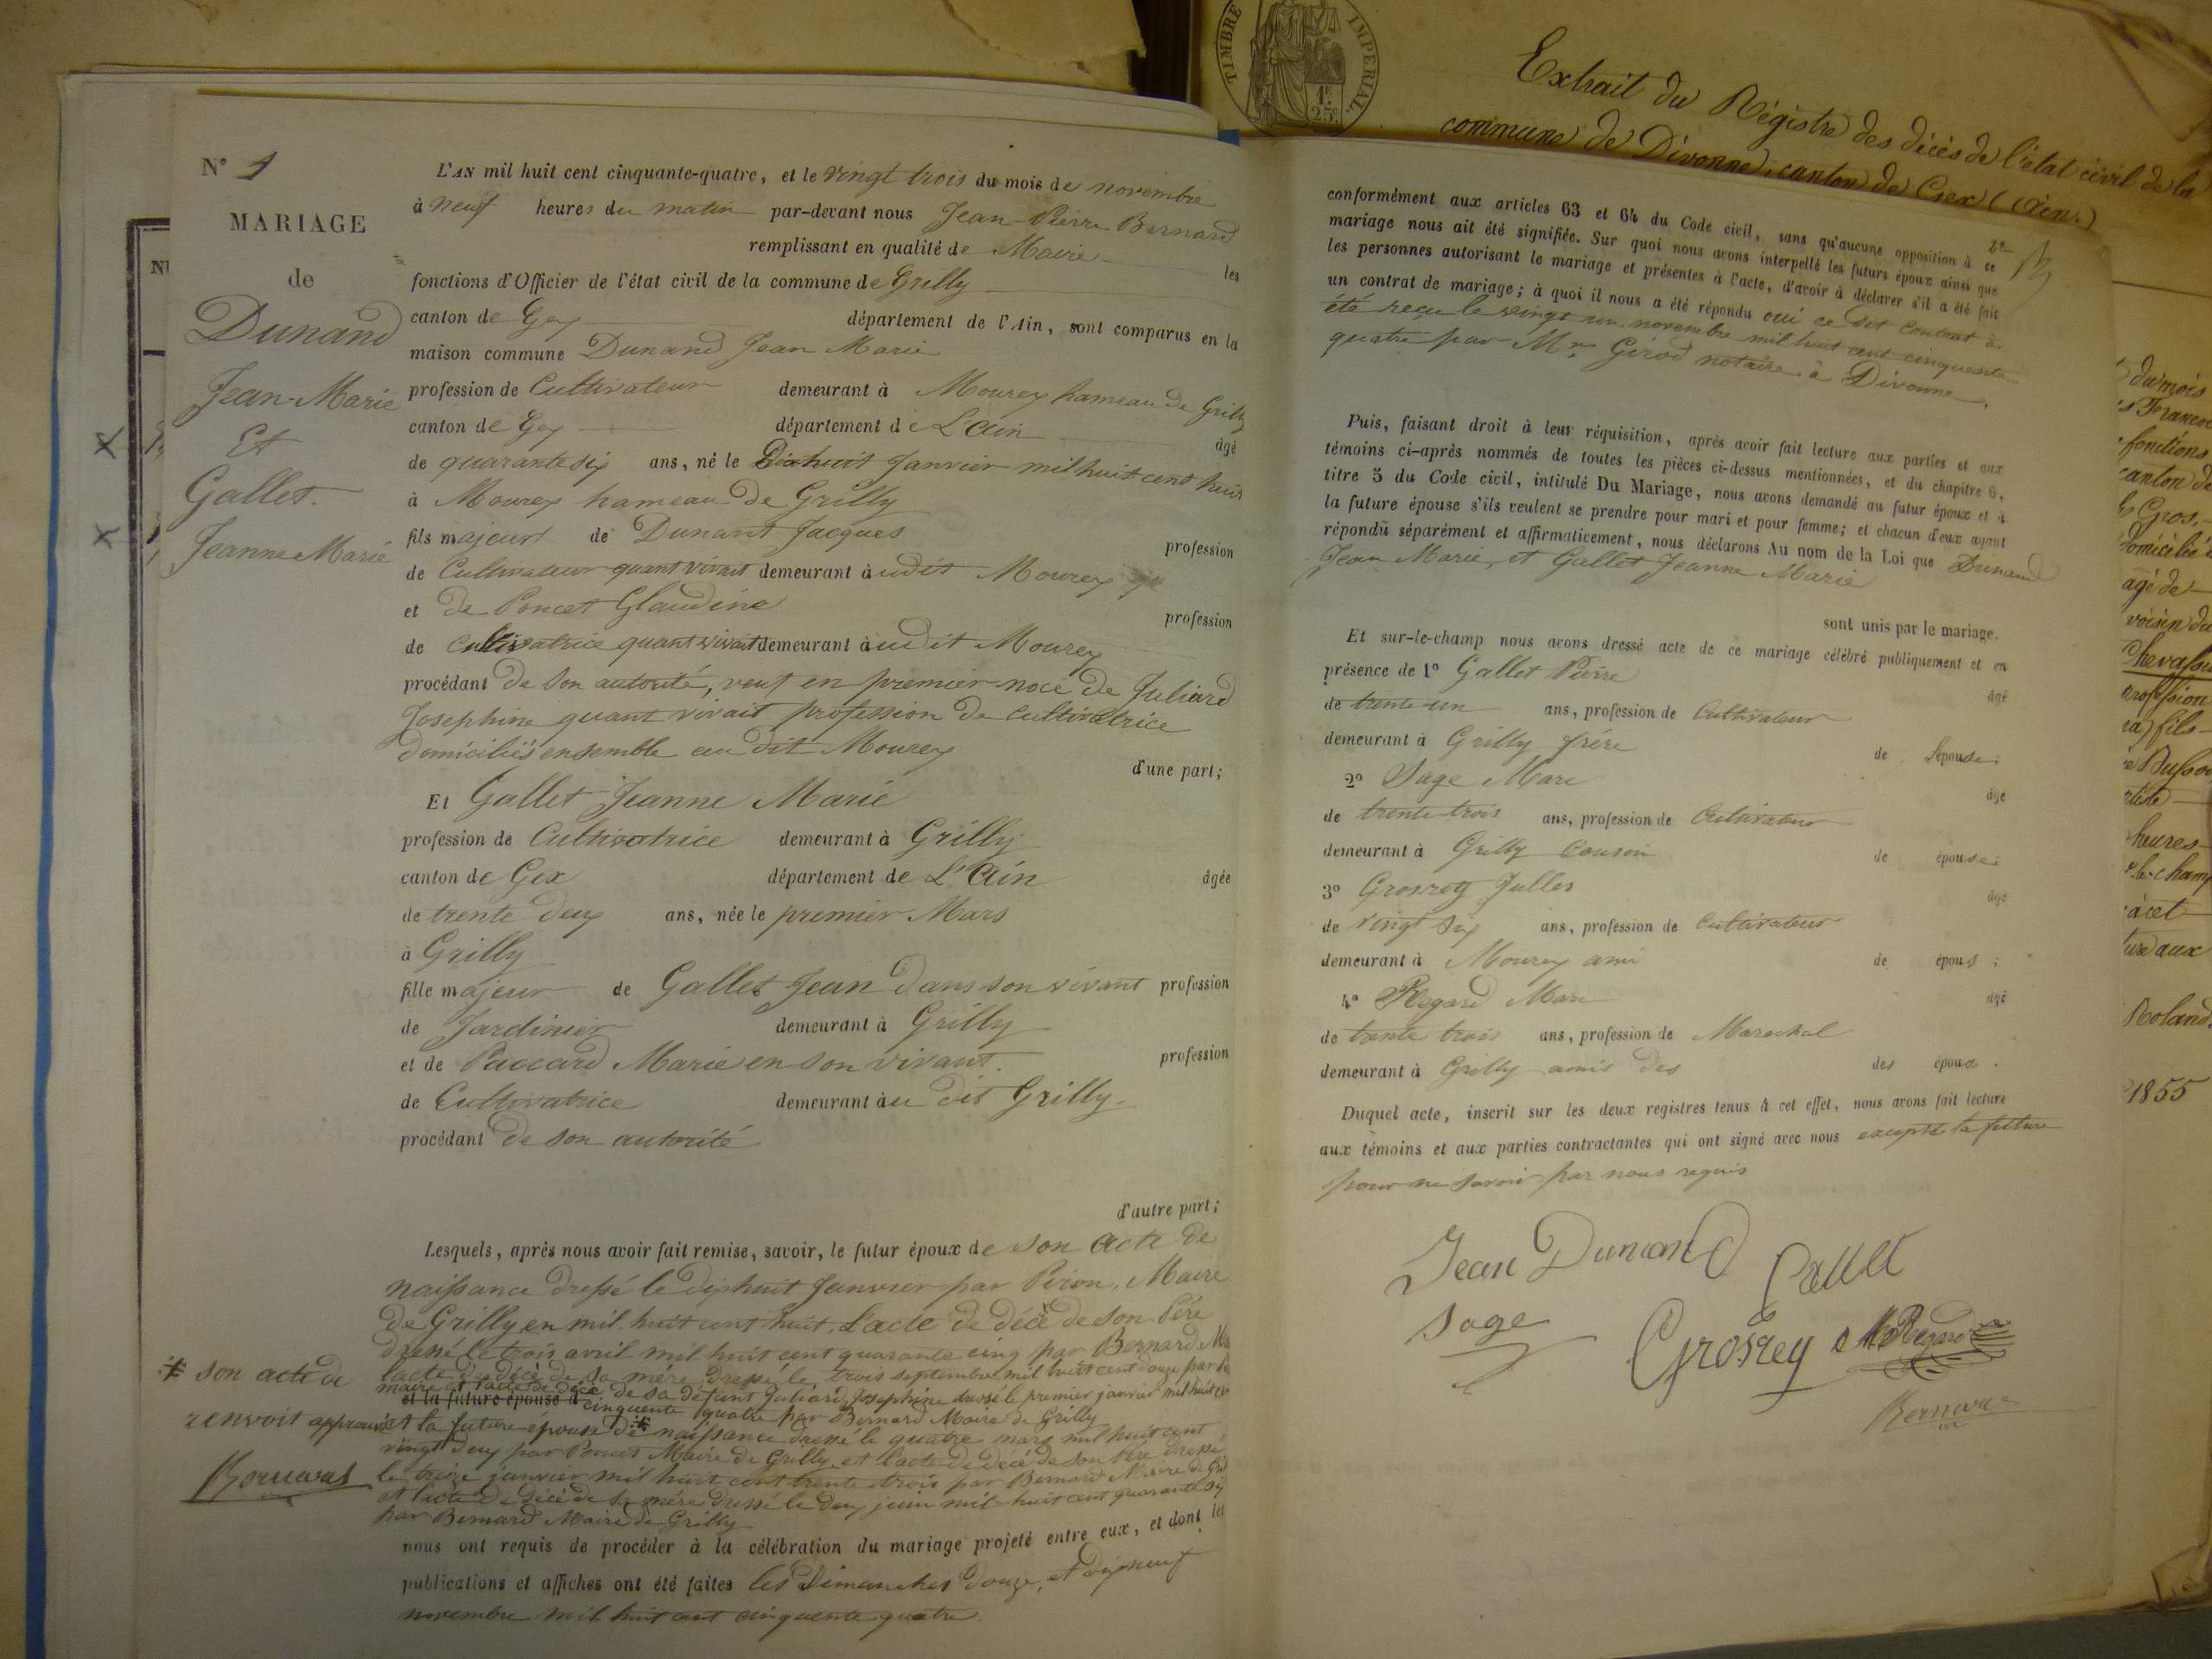 TIMBRE IMPERIAL.
1F
25c.
Extrait du Régistre des décès de l'état civil de la
commune de Divonne, canton de Gex (Ain.)
N° 1
MARIAGE
de
Dunand
Jean-Marie
Et
Gallet.
Jeanne Marie
L'AN mil huit cent cinquante-quatre, et le vingt trois du mois de novembre
à neuf heures du matin par-devant nous Jean-Pierre Bernard
remplissant en qualité de Maire les
fonctions d'Officier de l'état civil de la commune de Grilly
canton de Gex département de l'Ain, sont comparus en la
maison commune Dunand Jean Marie
profession de Cultivateur demeurant à Mourex hameau de Grilly
canton de Gex département de L'Ain âgé
de quarante six ans, né le Dixhuit Janvier mil huit cent huit
à Mourex hameau de Grilly
fils majeur de Dunant Jacques profession
de Cultivateur quant vivait demeurant à udit Mourex
et de Poncet Glaudine profession
de Cultivatrice quant vivait demeurant à udit Mourex
procédant de son autorité, veuf en premier noce de Juliard
Josephine quant vivait profession de cultivatrice
domiciliés ensemble au dit Mourex
d'une part;
Et Gallet Jeanne Marie
profession de Cultivatrice demeurant à Grilly
canton de Gex département de L'Ain âgée
de trente deux ans, née le premier Mars
à Grilly
fille majeur de Gallet Jean dans son vivant profession
de Jardinier demeurant à Grilly
et de Paccard Marie en son vivant. profession
de Cultivatrice demeurant àu dit Grilly.
procédant de son autorité
d'autre part;
Lesquels, après nous avoir fait remise, savoir, le futur époux de son acte de
naissance dressé le dixhuit Janvier par Piron, Maire
de Grilly en mil huit cent huit, L'acte de décè de son Père
dressé le trois avril mil huit cent quarante cinq par Bernard
lacte de décè de sa mère dressé le trois septembre mil huit cent douze par
maire et l'acte de décè de sa défunt Juliard Josephine dressé le premier janvier mil huit
et la future épouse d cinquente quatre par Bernard Maire de Grilly
et la future épouse de * naissance dressé le quatre mars mil huit cent
vingt deux par Poncet Maire de Grilly, et l'acte de décè de son Père dressé
le treize janvier mil huit cent trente trois par Bernard Maire de
et l'acte de décè de sa mère dressé le deux juin mil huit cent quarante six
par Bernard Maire de Grilly
* son acte de
renvoit approuvé
Bernard
nous ont requis de procéder à la célébration du mariage projeté entre eux, et dont les
publications et affiches ont été faites les Dimanches douze, et dixneuf
novembre mil huit cent cinquente quatre.
conformément aux articles 63 et 64 du Code civil, sans qu'aucune opposition à ce
mariage nous ait été signifiée. Sur quoi nous avons interpellé les futurs époux ainsi que
les personnes autorisant le mariage et présentes à l'acte, d'avoir à déclarer s'il a été fait
un contrat de mariage; à quoi il nous a été répondu oui ce dit contrat à
été reçu le vingt un novembre mil huit cent cinquente
quatre par Mr Girod notaire à Divonne.
Puis, faisant droit à leur réquisition, après avoir fait lecture aux parties et aux
témoins ci-après nommés de toutes les pièces ci-dessus mentionnées, et du chapitre 6,
titre 5 du Code civil, intitulé Du Mariage, nous avons demandé au futur époux et à
la future épouse s'ils veulent se prendre pour mari et pour femme; et chacun d'eux ayant
répondu séparément et affirmativement, nous déclarons Au nom de la Loi que Dunand
Jean Marie, et Gallet Jeanne Marie
sont unis par le mariage.
Et sur-le-champ nous avons dressé acte de ce mariage célébré publiquement et en
présence de 1° Gallet Pierre âgé
de trente-un ans, profession de Cultivateur
demeurant à Grilly frère de Lépouse;
2° Sage Marc âgé
de trente trois ans, profession de Cultivateur
demeurant à Grilly Cousin de épouse;
3° Grosrey Julles âgé
de vingt six ans, profession de Cultivateur
demeurant à Mourex ami de épous;
4° Regard Marc âgé
de trente trois ans, profession de Marechal
demeurant à Grilly amis des des époux.
Duquel acte, inscrit sur les deux registres tenus à cet effet, nous avons fait lecture
aux témoins et aux parties contractantes qui ont signé avec nous excepté la future
pour ne savoir par nous requis
Jean Dunand Gallet
Sage Grosrey M Regard
Bernard
du mois
fonctions
canton de
Gros,
domicilié
agé de
voisin du
profession
fils
heures
le-champ
acet
aux
Roland
1855